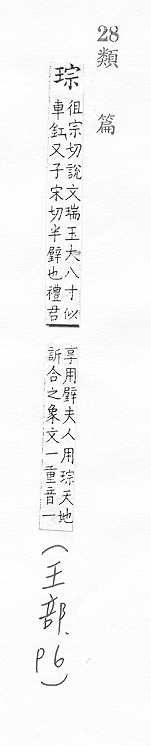 28
類篇
琮
徂宗切說文瑞玉大八寸似
車釭又子宋切半璧也禮君
享用璧夫人用琮天地
訢合之象文一重音一
(王部、p6)